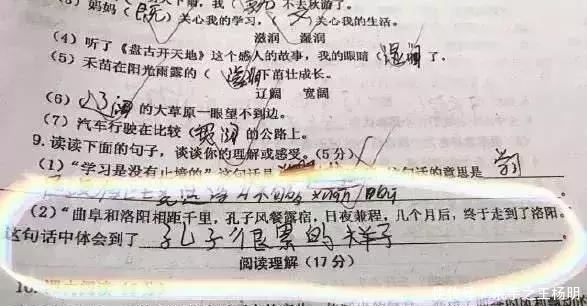 妈妈(既)关心我的学习,(又)关心我的生活。
滋润 湿润
(4)听了《盘古开天地》这个感人的故事,我的眼睛(湿润)了。
(5)禾苗在阳光雨露的(滋润)下茁壮成长。
辽阔 宽阔
(6)辽阔的大草原一眼望不到边。
(7)汽车行驶在比较(宽阔)的公路上。
9.读读下面的句子,谈谈你的理解或感受。(5分)
(1)“学习是没有止境的”这句话是 这句话的意思是 学习
(2)“曲阜和洛阳相距千里,孔子风餐露宿,日夜兼程,几个月后,终于走到了洛阳。
这句话中体会到了 孔子很累的样子
阅读理解(17分)